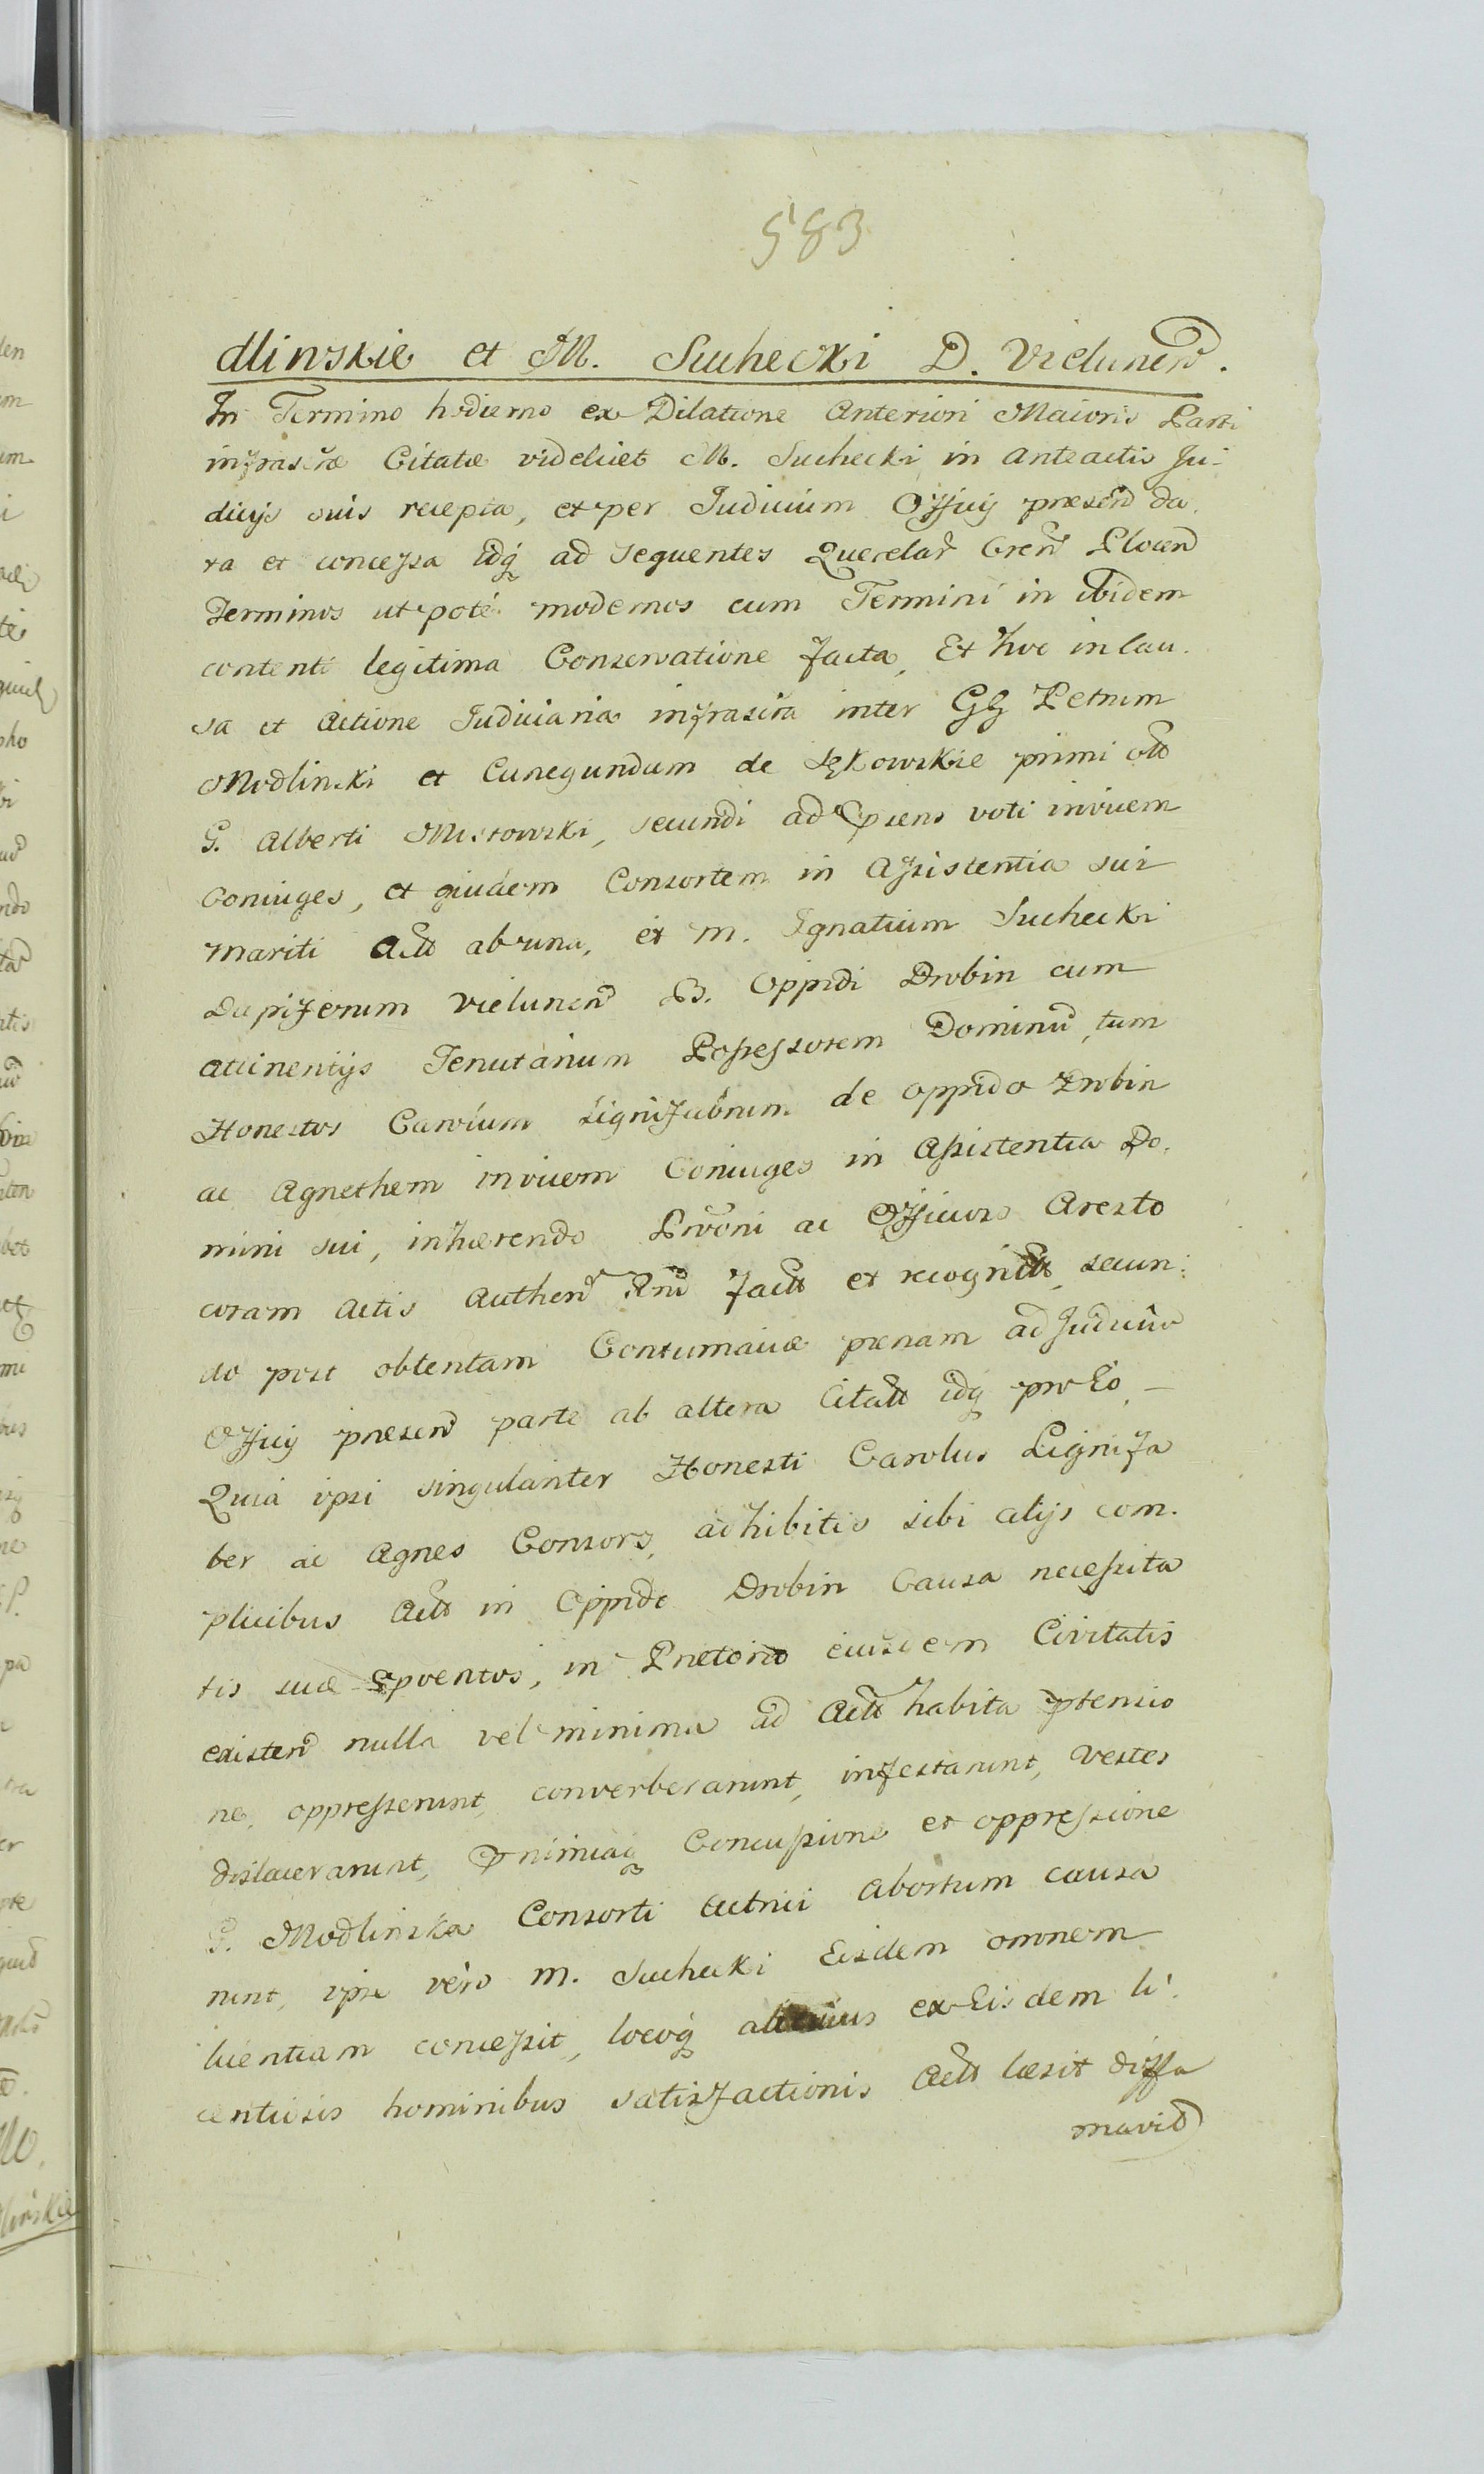 583
dlinskie et M. Suchecki D. Vielunen.
In Termino hodierno ex Dilatione Anteriori Maioris Parti
infrascræ Citatæ videlicet M. Suchecki in anteactis Ju-
dicijs suis recepta, et per Judicium Officij præsen da
ta et concessa idq ad sequentes Querelar Cren Plocen
Terminos utpote modernos cum Termini in ibidem
contenti legitima Conservatione facta, Et hoc in cau-
sa et actione Judiciaria infrascra inter GG Petrum
Modlinski et Cunegundam de Łękowskie primi ott
G. Alberti Mistowski, secundi ad præsens voti invicem
Coniuges, et quidem Consortem in Assistentia sui
mariti Actt ab una, et M. Ignatium Suchecki
Dapiferum Vielunen B. Oppidi Drobin cum
attinentijs Tenutarium Possessorem Dominum, tum
Honestos Carolum Lignifabrum de oppido Drobin
ac Agnethem invicem Coniuges in Assistentia Do-
mini sui, inhærendo Prōni ac Officioso Aresto
coram actis Authen factt et recognitt, secun-
do post obtentam Contumaciæ pænam ad Judicium
Officij præsen parte ab altera Citatt idq pro Eo,
Quia ipsi singulariter Honesti Carolus Lignifa
ber ac Agnes Consors, adhibitis sibi alijs com-
plicibus Actt in Oppido Drobin Causa necessita
tis suæ, in Prætorio eiusdem Civitatis
existen nulla vel minima ad Actt habita ptensio
ne, oppresserunt, converberarunt, infestarunt, Vestes
dislacerarunt, nimiaq Concussione et oppressione
G. Modlinska Consorti abortum causa
runt, ipse vero M. Suchecki Eisdem omnem
licentiam concessit, locoq ex Eisdem li-
centiosis hominibus satisfactionis Actt læsit diffa
mavit